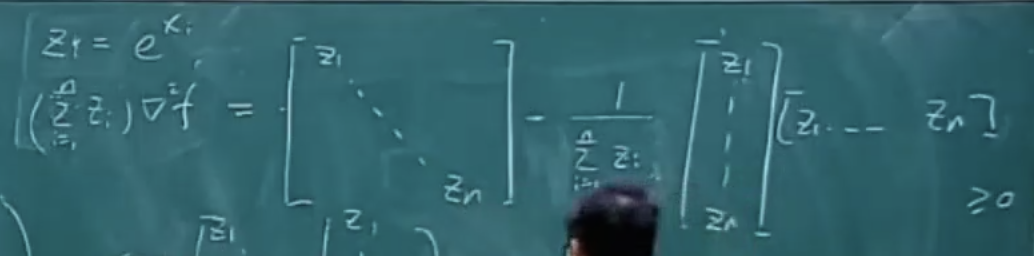 z_i = e^{x_i}
(\sum_{i=1}^{n} z_i) ∇²f = [z_1 ⋱ z_n] - \frac{1}{\sum_{i=1}^{n} z_i} [z_1 ⋮ z_n] [z_1 --- z_n]
≥0
z_1 z_1